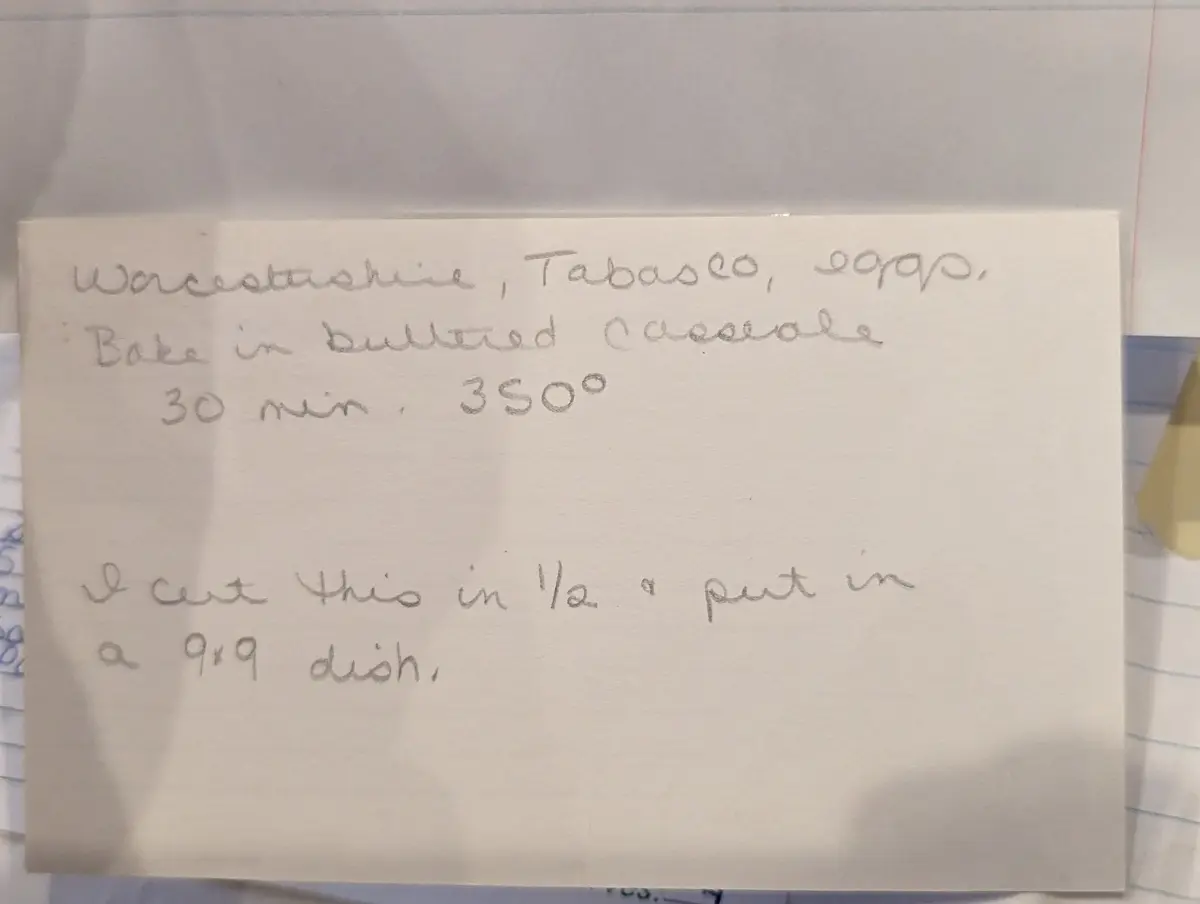 Worcestershire, Tabasco, eggs.
Bake in buttered casserole
30 min. 350°
I cut this in 1/2 & put in
a 9x9 dish.